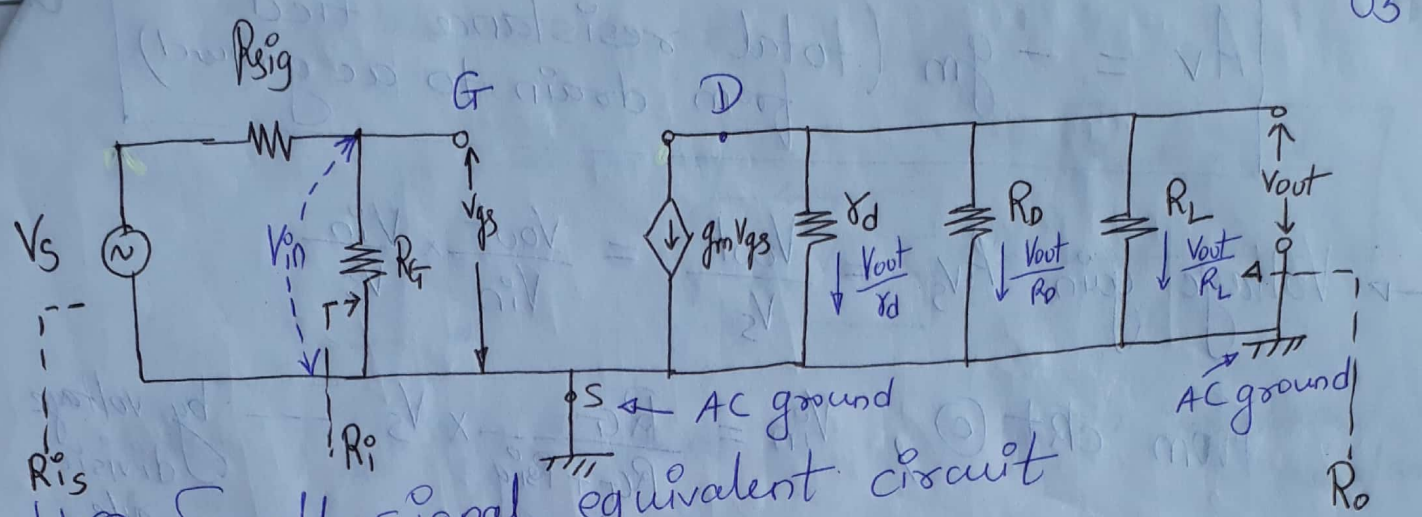 03
Rsig
G
D
Vs
Vin
RG
Vgs
gmVgs
rd
Vout
rd
RD
Vout
RD
RL
Vout
RL
Vout
S ← AC ground
AC ground
Ris
Ri
Ro
equivalent circuit